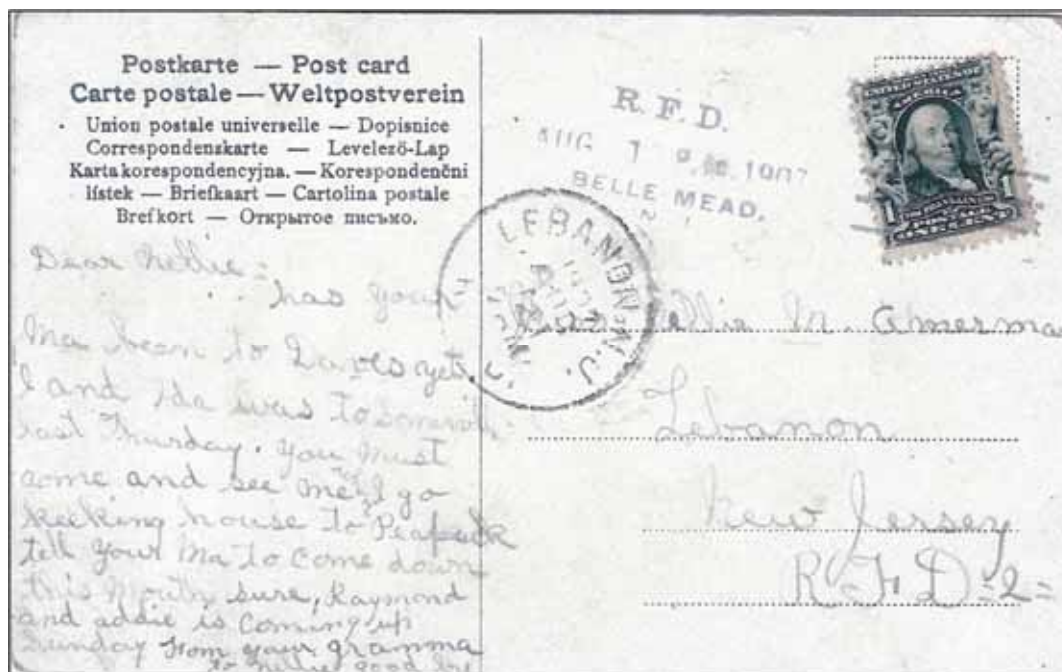 Postkarte — Post card
Carte postale — Weltpostverein
Union postale universelle — Dopisnice
Correspondenskarte — Levelező-Lap
Karta korespondencyjna. — Korespondenční
lístek — Briefkaart — Cartolina postale
Brefkort — Открытое письмо.
Dear Nellie =
has your
Ma been to Daves yet,
I and Ida was to
last Thursday. You must
come and see me
keeking house to Peapack
tell your Ma to come down
this Month sure, Raymond
and addie is coming up
Sunday from your gramma
to Nellie good bye
R. F. D.
AUG 1 1907
BELLE MEAD,
N
LEBANON N.J.
UNITED STATES OF
AMERICA
1 1
POSTAGE
ONE CENT
ellie M. Amerma
Lebanon
New Jersey
R F D = 2 =